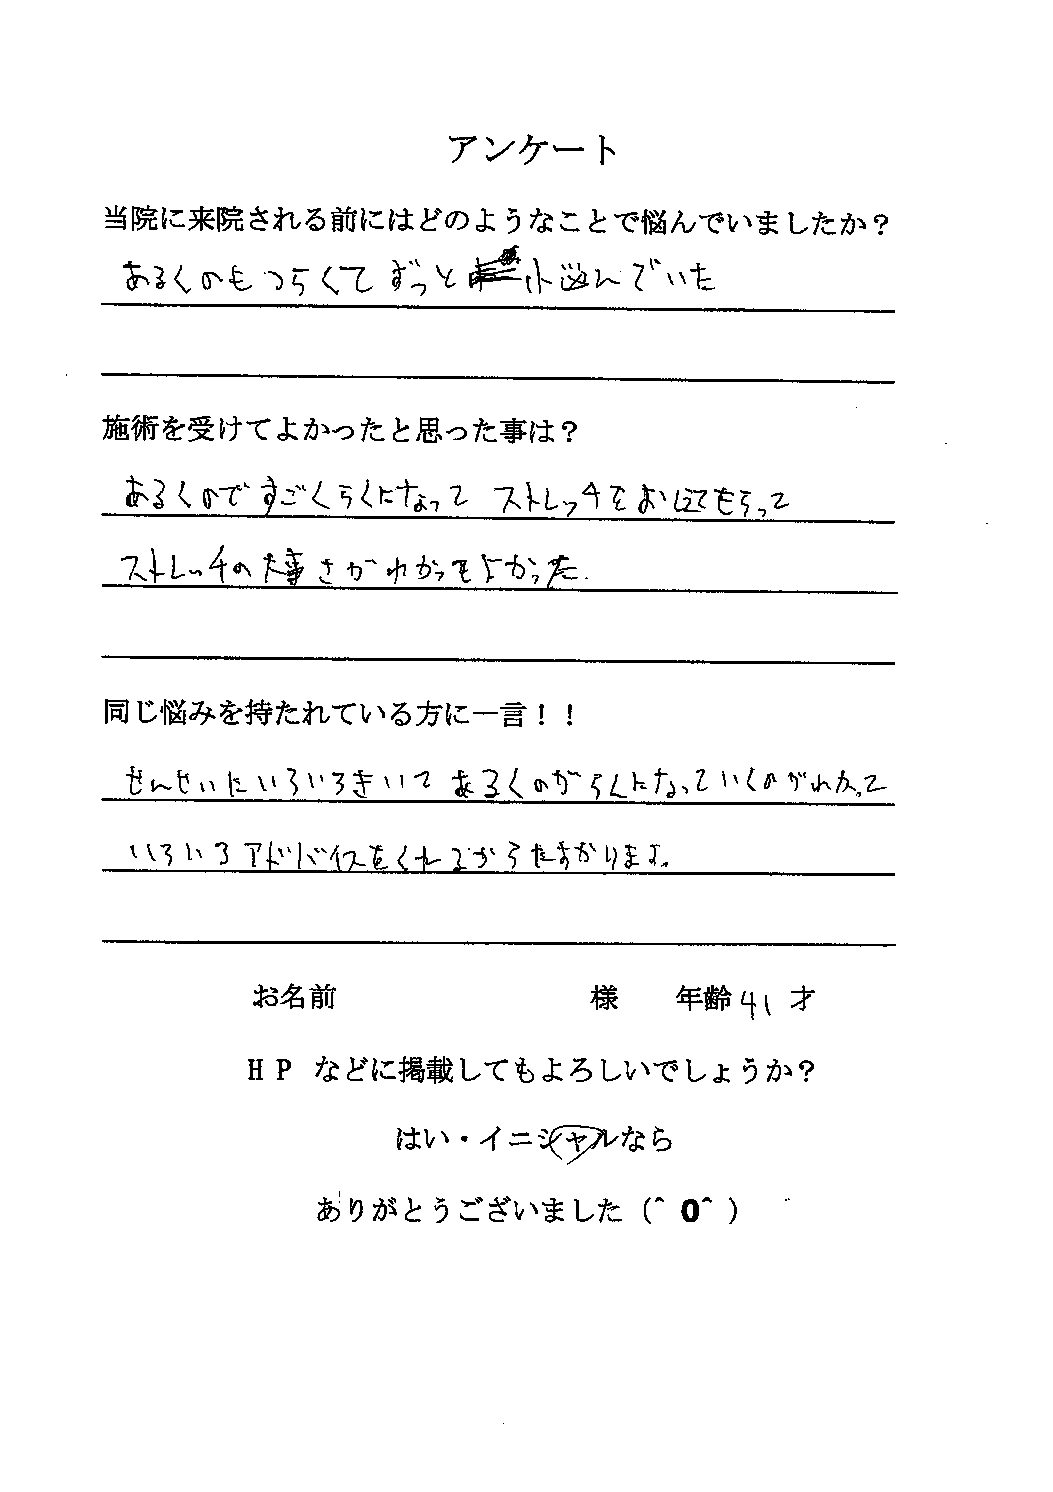 アンケート
当院に来院される前にはどのようなことで悩んでいましたか？
あるくのもつらくてずっと 悩んでいた
施術を受けてよかったと思った事は？
あるくのですごくらくになって ストレッチをおしえてもらって
ストレッチの大事さがわかってよかった.
同じ悩みを持たれている方に一言！！
せんせいにいろいろきいて あるくのがらくになっていくのがわかって
いろいろアドバイスをくれてからたすかります。
お名前 様 年齢 41 才
ＨＰ などに掲載してもよろしいでしょうか？
はい・イニシャルなら
ありがとうございました（＾０＾）